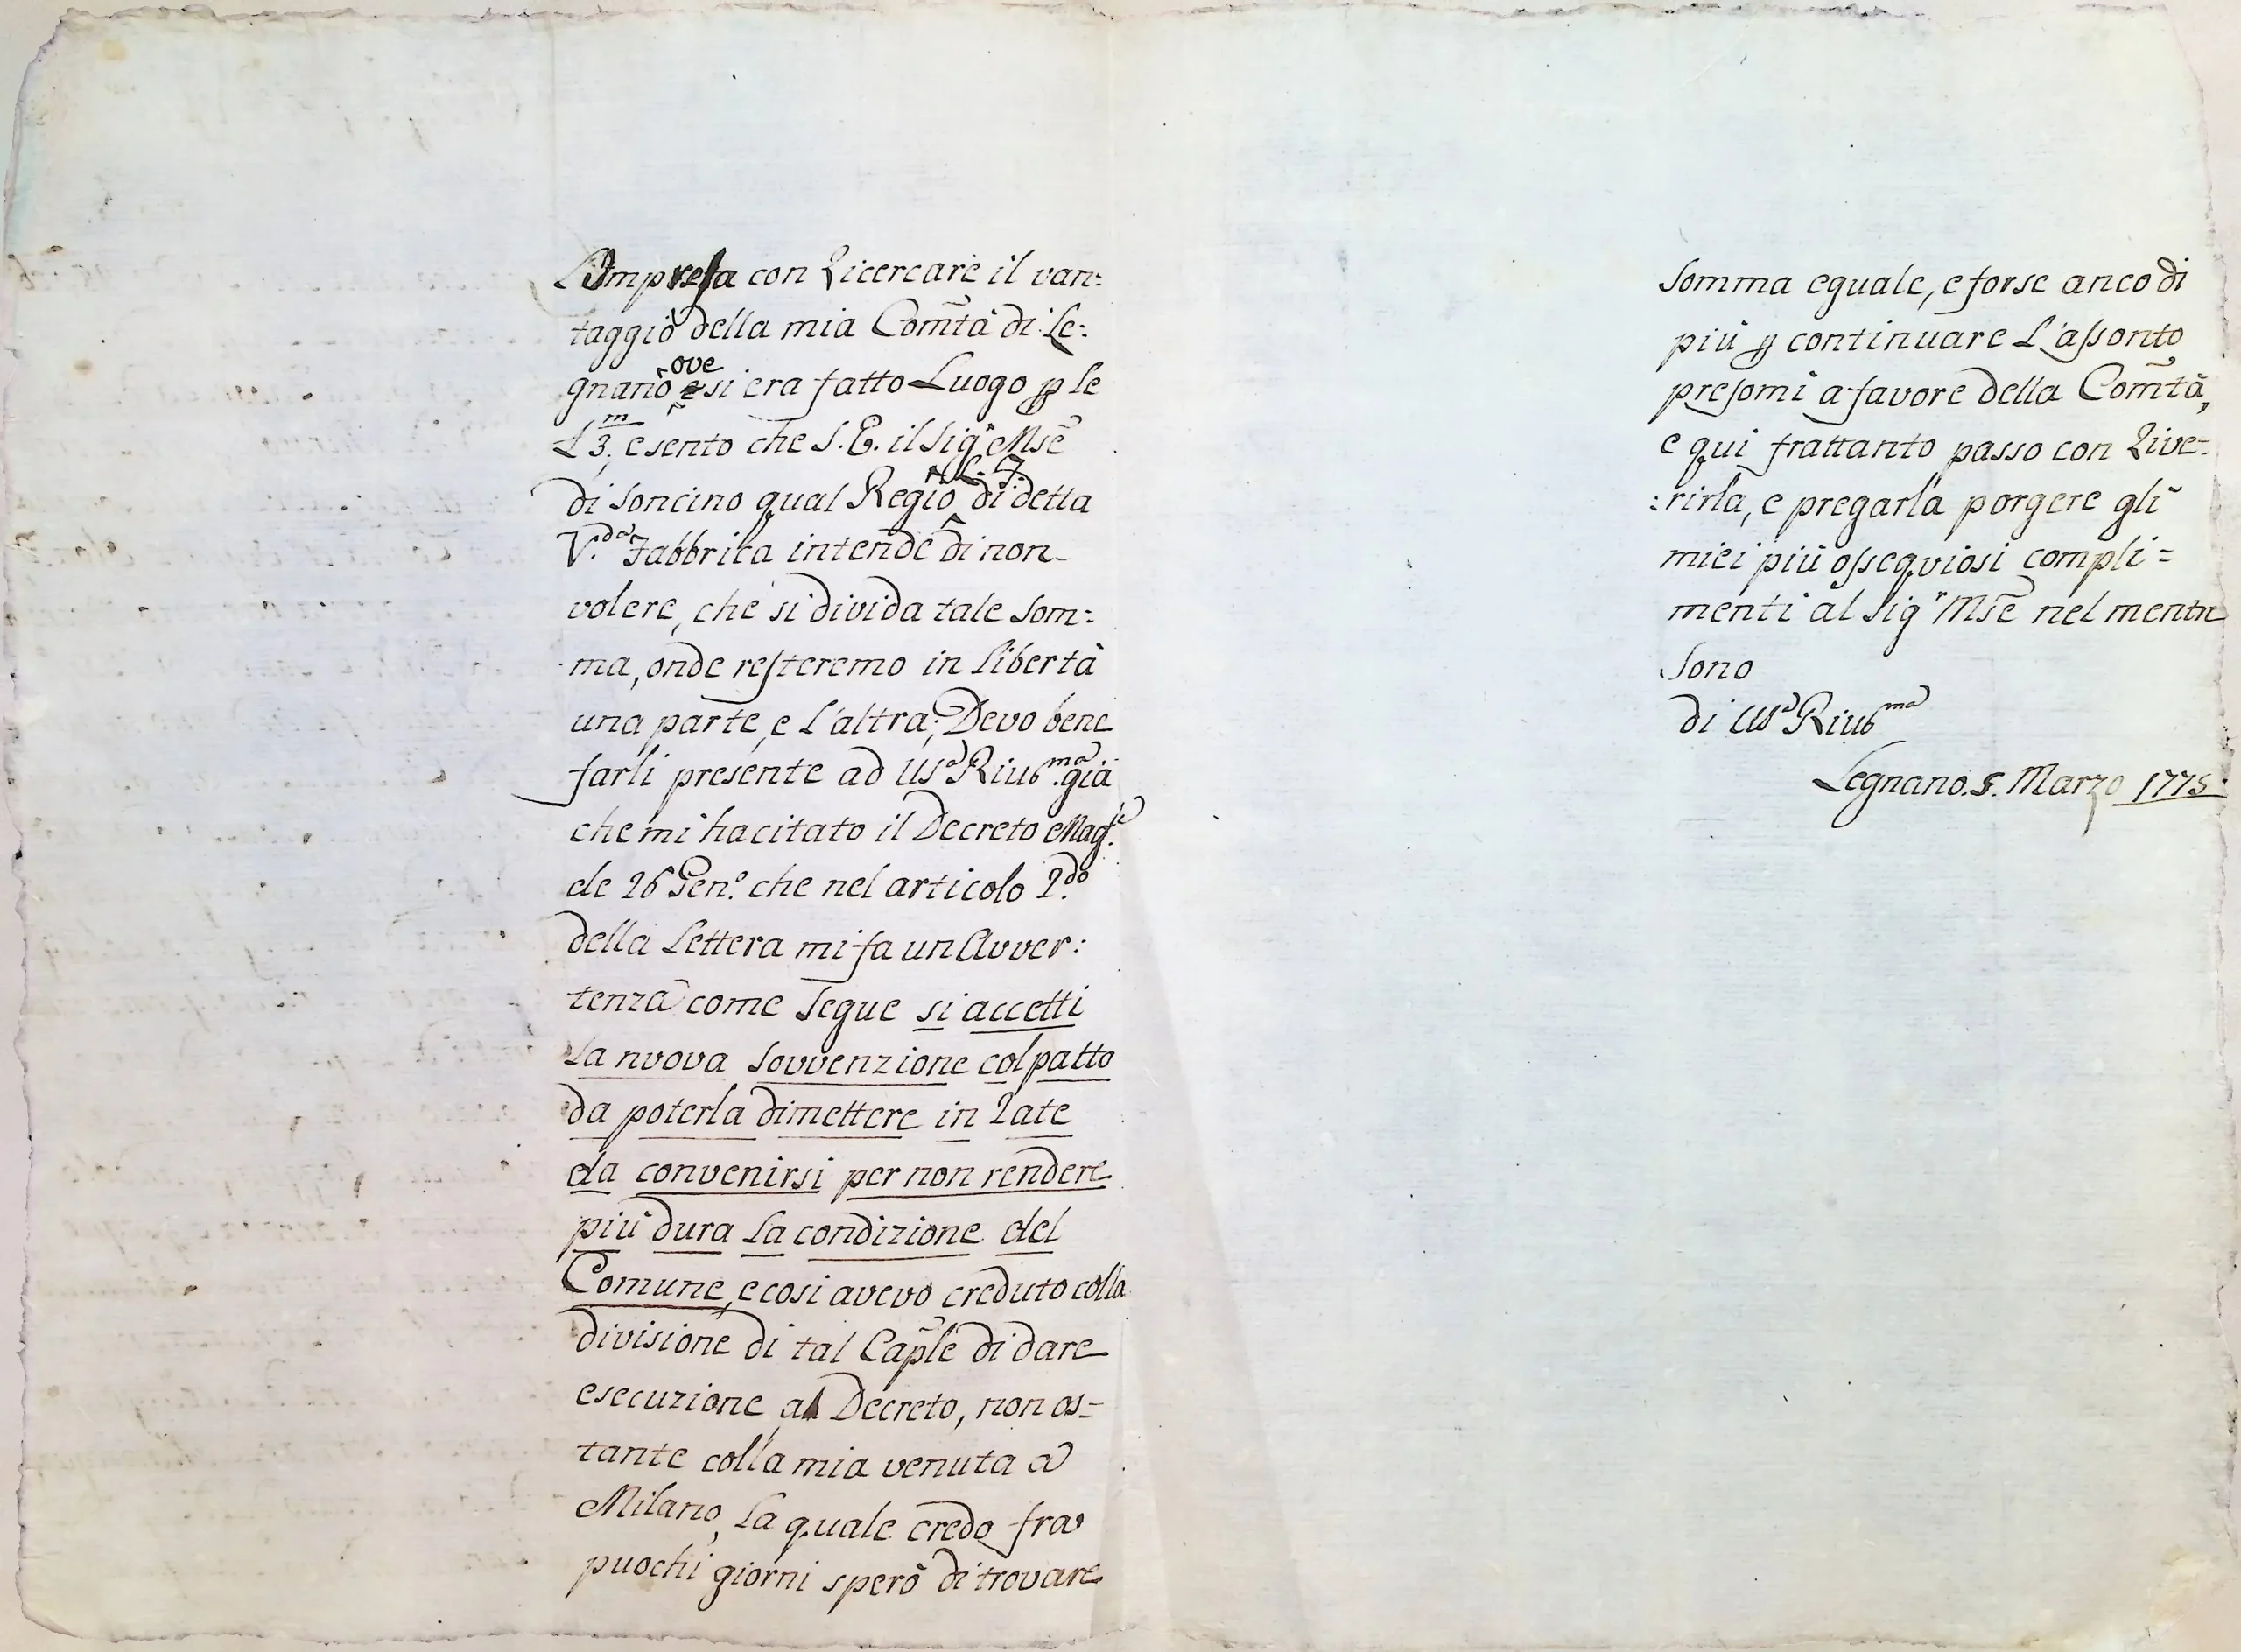 L'Impresa con Ricercare il van:
taggio della mia Com̃tà di Le:
gnano ove si era fatto Luogo p le
L 3;m e sento che S. E. il Sig.r Mse
di Soncino qual Regio L. T. di detta
V.da Fabbrica intende di non
volere, che si divida tale Som:
ma, onde resteremo in libertà
una parte, e l'altra; Devo bene
farli presente ad USa Riv.ma già
che mi ha citato il Decreto Mag.le
de 26 Gen.o che nel articolo 2.do
della Lettera mi fa un Avver:
tenza come Segue si accetti
La nuova Sovvenzione col patto
da poterla dimettere in Rate
da convenirsi per non rendere
più dura La condizione del
Comune, e cosi avevo creduto colla
divisione di tal Cap̃le di dare
esecuzione al Decreto, non os=
tante colla mia venuta a
Milano, La quale credo fra
puochi giorni sperò di trovare
Somma eguale, e forse anco di
più p continuare L'assonto
presomi a favore della Com̃tà,
e qui frattanto passo con Rive=
:rirla, e pregarla porgere gli
miei più ossequiosi compli=
menti al Sig.r Mse nel mentre
Sono
di USa Riv.ma
Legnano. 5. Marzo 1775